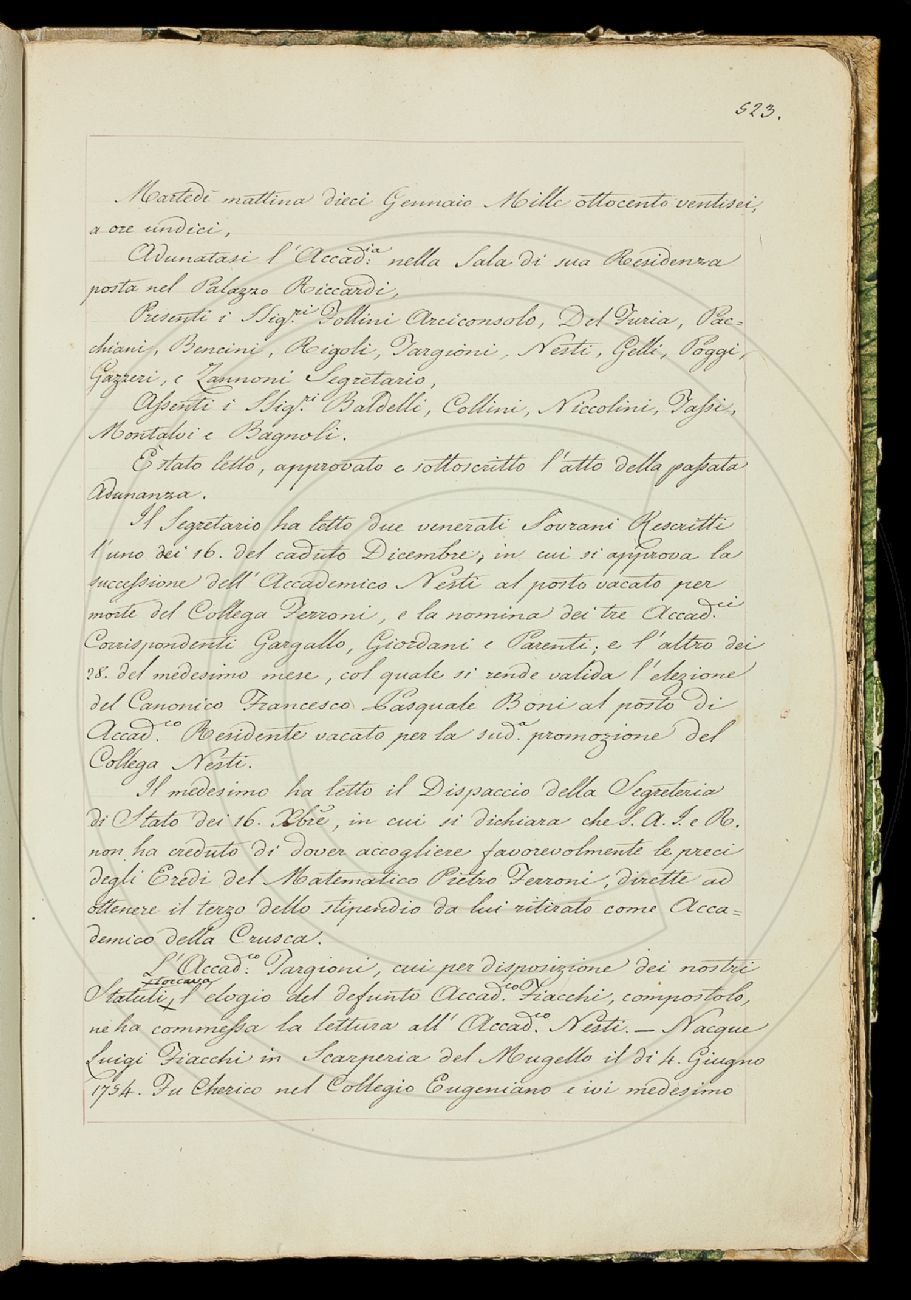 523.
Martedì mattina dieci Gennaio Mille ottocento ventisei,
a ore undici,
Adunatasi l'Accad.ia nella Sala di sua Residenza
posta nel Palazzo Riccardi,
Presenti i Sig.ri Follini Arciconsolo, Del Furia, Pac=
chiani, Bencini, Rigoli, Targioni, Nesti, Gelli, Poggi,
Gazzeri, e Zannoni Segretario,
Assenti i Sig.ri Baldelli, Collini, Niccolini, Tassi,
Montalvi e Bagnoli.
È stato letto, approvato e sottoscritto l'atto della passata
Adunanza.
Il Segretario ha letto due venerati Sovrani Rescritti
l'uno dei 16. del caduto Dicembre, in cui si approva la
successione dell'Accademico Nesti al posto vacato per
morte del Collega Ferroni, e la nomina dei tre Accad.ci
Corrispondenti Gargallo, Giordani e Parenti; e l'altro dei
28. del medesimo mese, col quale si rende valida l'elezione
del Canonico Francesco Pasquale Boni al posto di
Accad.co Residente vacato per la sud.a promozione del
Collega Nesti.
Il medesimo ha letto il Dispaccio della Segreteria
di Stato dei 16. Xbre, in cui si dichiara che S. A. I. e R.
non ha creduto di dover accogliere favorevolmente le preci
degli Eredi del Matematico Pietro Ferroni, dirette ad
ottenere il terzo dello stipendio da lui ritirato come Acca=
demico della Crusca.
L'Accad.co Targioni, cui per disposizione dei nostri
Statuti, toccava l'elogio del defunto Accad.co Fiacchi, compostolo,
ne ha commessa la lettura all'Accad.co Nesti. — Nacque
Luigi Fiacchi in Scarperia del Mugello il dì 4. Giugno
1754. Fu Cherico nel Collegio Eugeniano e ivi medesimo